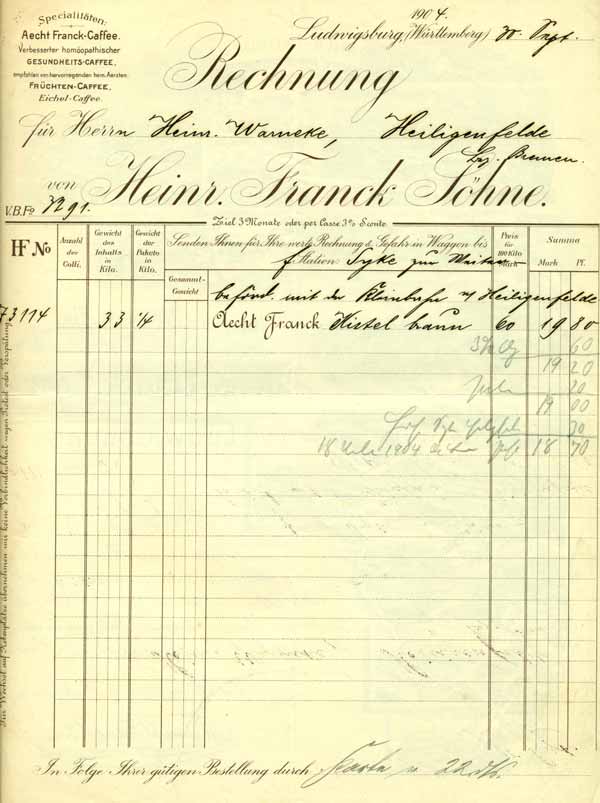 Specialitäten:
Aecht Franck-Caffee.
Verbesserter homöopathischer
GESUNDHEITS-CAFFEE,
empfohlen von hervorragenden hom. Aerzten.
FRÜCHTEN-CAFFEE,
Eichel-Caffee.
1904.
Ludwigsburg, (Württemberg) 30 Sept.
Rechnung
für Herrn Heinr. Warneke, Heiligenfelde
Bz. Bremen.
von Heinr. Franck Söhne.
V.B.Fo. 3291.
Ziel 3 Monate oder per Casse 3% Sconto.
HF No
Anzahl der Colli.
Gewicht des Inhalts in Kilo.
Gewicht der Pakete in Kilo.
Gesammt-Gewicht
Senden Ihnen für Ihre werte Rechnung & Gefahr in Waggon bis
f Station: Syke zur Weiter-
Preis für 100 Kilo Mark
Summa
Mark Pf.
beförd. mit der Kleinbahn n/ Heiligenfelde
73114 33 1/4 Aecht Franck Kistel braun 60 19 80
3% 60
19 20
20
19 00
30
18 1904 18 70
Für Wechsel auf Nebenplätze übernehmen wir keine Verbindlichkeit wegen Protest oder Verspätung.
In Folge Ihrer gütigen Bestellung durch Karte v. 22 ds.